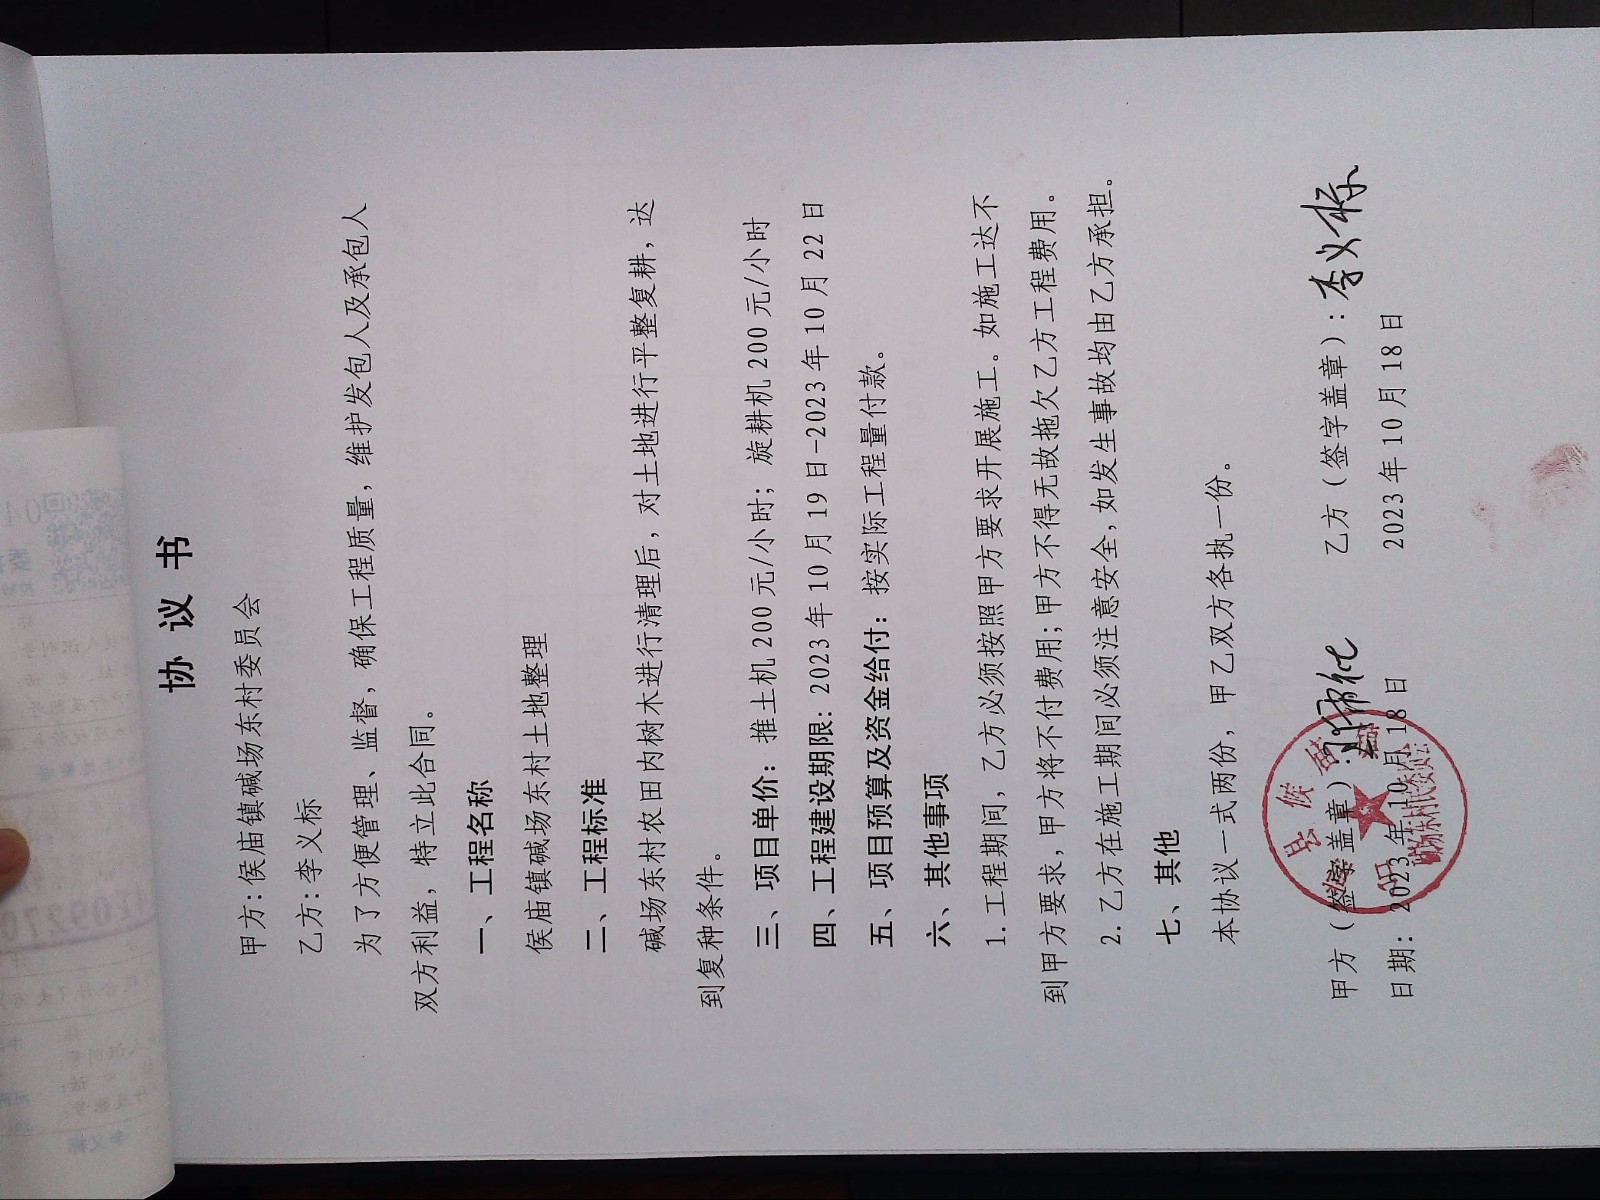 协 议 书
甲方:侯庙镇碱场东村委员会
乙方:李义标
为了方便管理、监督,确保工程质量,维护发包人及承包人
双方利益,特立此合同。
一、工程名称
侯庙镇碱场东村土地整理
二、工程标准
碱场东村农田内树木进行清理后,对土地进行平整复耕,达
到复种条件。
三、项目单价:推土机200元/小时;旋耕机200元/小时
四、工程建设期限:2023年10月19日-2023年10月22日
五、项目预算及资金给付:按实际工程量付款。
六、其他事项
1.工程期间,乙方必须按照甲方要求开展施工。如施工达不
到甲方要求,甲方将不付费用;甲方不得无故拖欠乙方工程费用。
2.乙方在施工期间必须注意安全,如发生事故均由乙方承担。
七、其他
本协议一式两份,甲乙双方各执一份。
甲方(签字盖章): 乙方(签字盖章):李义标
日期:2023年10月18日 2023年10月18日